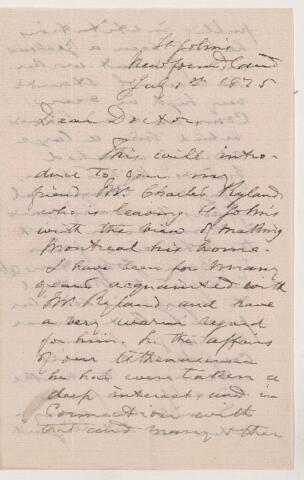 St John's
Newfoundland
July 1st 1875
Dear Doctor,
This will intro-
duce to you my
friend, Mr. Charles Ryland
who is leaving St John's
with the view of making
Montreal his home.
I have been for many
years acquainted with
Mr. Ryland and have
a very warm regard
for him. In the affairs
of our Athenaeum
he has ever taken a
deep interest, and in
Connection with
that and many other